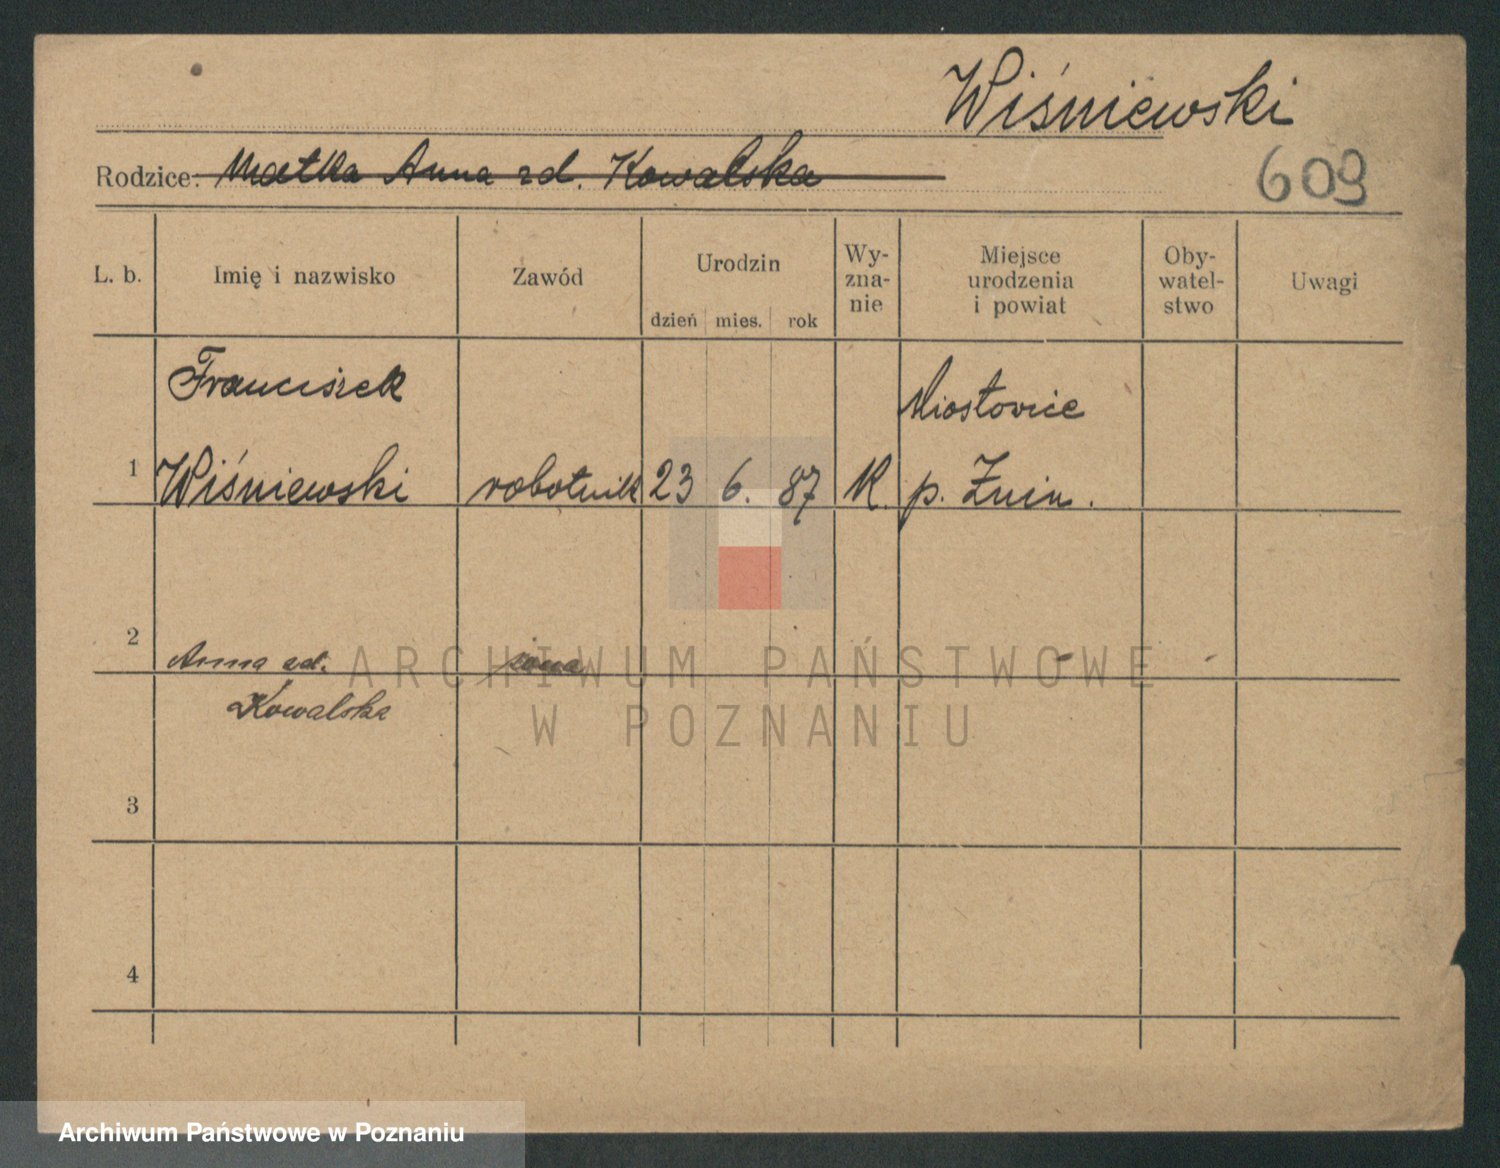 Wiśniewski
Rodzice: Matka Anna zd. Kowalska
609
L. b. Imię i nazwisko Zawód Urodzin Wy-zna-nie Miejsce urodzenia i powiat Oby-watel-stwo Uwagi
dzień mies. rok
Franciszek Miostovice
1 Wiśniewski robotnik 23 6. 87 R. p. Żnin.
2 Anna zd. żona
Kowalska
3
4
ARCHIWUM PAŃSTWOWE
W POZNANIU
Archiwum Państwowe w Poznaniu